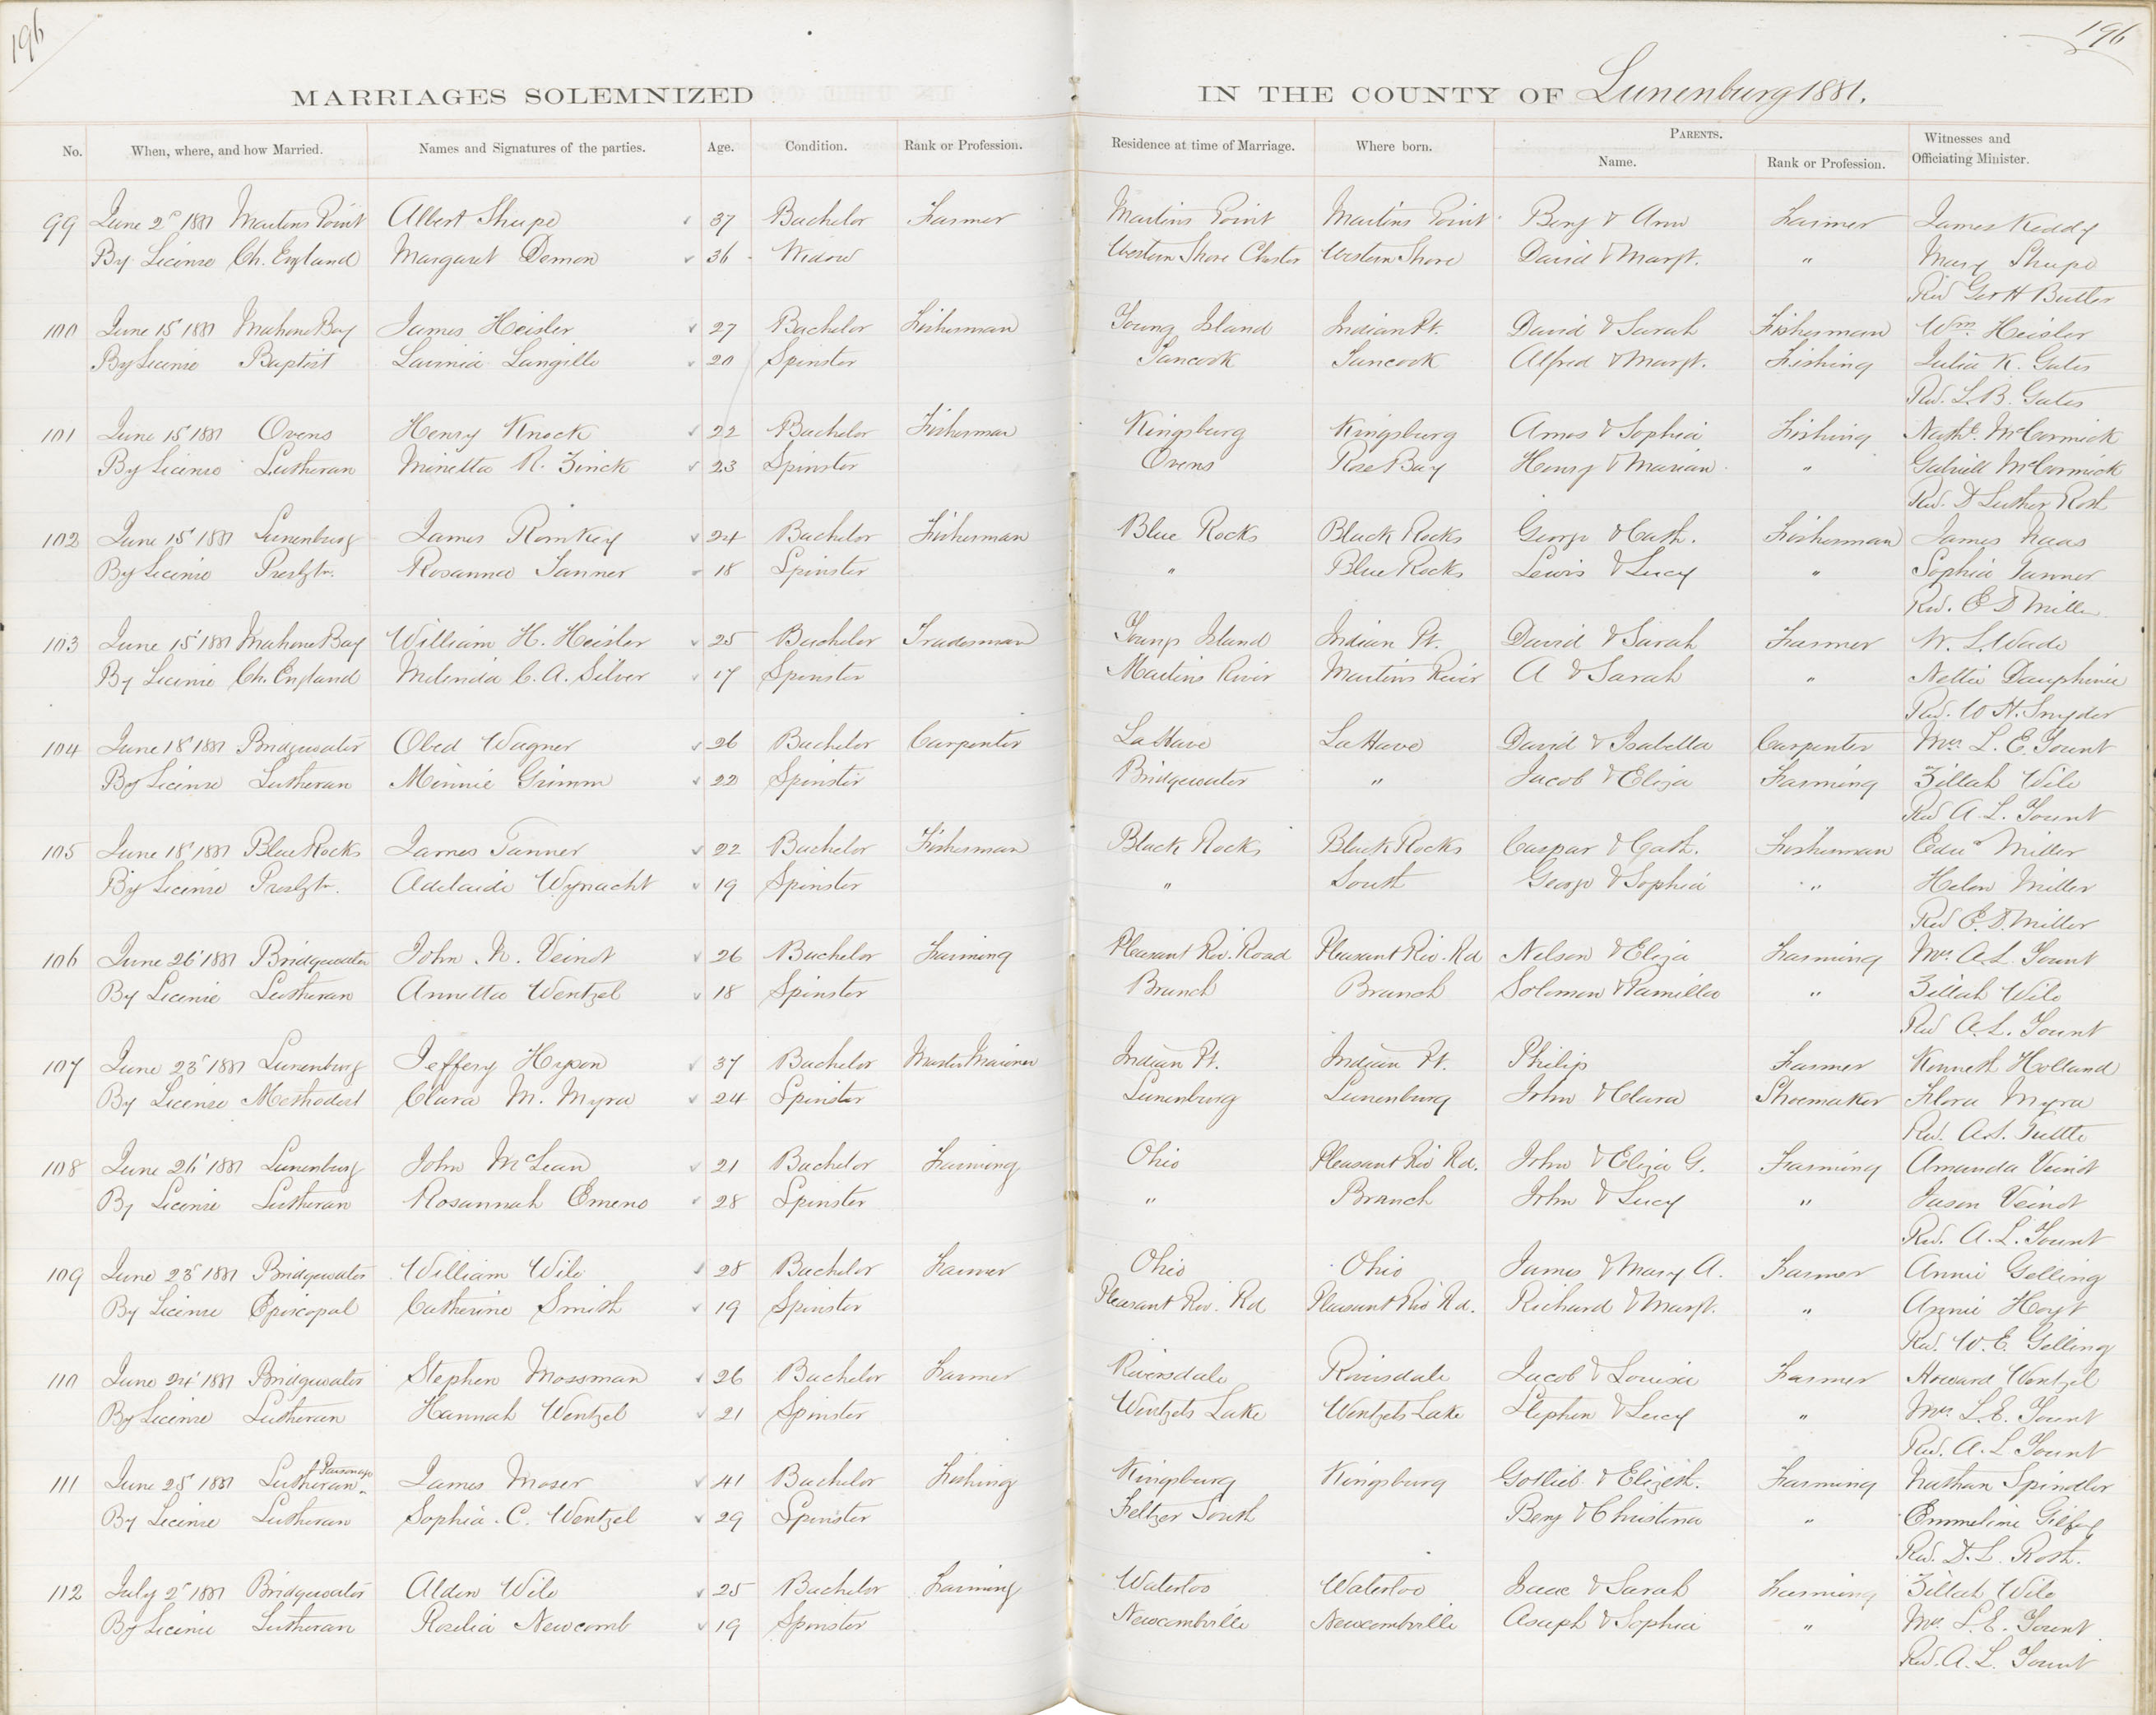 196
196
MARRIAGES SOLEMNIZED
IN THE COUNTY OF Lunenburg 1881.
No. When, where, and how Married. Names and Signatures of the parties. Age. Condition. Rank or Profession. Residence at time of Marriage. Where born. PARENTS. Name. Rank or Profession. Witnesses and Officiating Minister.
99 June 2d 1881 Martins Point Albert Shupe 37 Bachelor Farmer Martins Point Martins Point Benj & Ann Farmer James Keddy
By License Ch. England Margaret Demon 36 Widow Western Shore Chester Western Shore David & Margt. " Mary Shupe
Rev Geo H Butler
100 June 15 1881 Mahone Bay James Heisler 27 Bachelor Fisherman Young Island Indian Pt. David & Sarah Fisherman Wm. Heisler
By License Baptist Lavinia Langille 20 Spinster Tancook Tancook Alfred & Margt. Fishing Julia K. Gates
Rev. L. B. Gates
101 June 15 1881 Ovens Henry Knock 22 Bachelor Fisherman Kingsburg Kingsburg Amos & Sophia Fishing Nathl. McCormick
By License Lutheran Minetta R. Zinck 23 Spinster Ovens Rose Bay Henry & Marian " Gabriell McCormick
Rev. D Luther Roth
102 June 15 1881 Lunenburg James Romkey 24 Bachelor Fisherman Blue Rocks Black Rocks George & Cath. Fisherman James Naas
By License Presbytn. Rosanna Tanner 18 Spinster " Blue Rocks Lewis & Lucy " Sophia Tanner
Rev. E D Miller
103 June 15 1881 Mahone Bay William H. Heisler 25 Bachelor Tradesman Young Island Indian Pt. David & Sarah Farmer W. L. Wade
By License Ch. England Melinda C. A. Silver 17 Spinster Martins River Martins River A & Sarah " Nettie Dauphinee
Rev. W H. Snyder
104 June 18 1881 Bridgewater Obed Wagner 26 Bachelor Carpenter LaHave LaHave David & Isabella Carpenter Mrs. L. E. Yount
By License Lutheran Minnie Grimm 22 Spinster Bridgewater " Jacob & Eliza Farming Zillah Wile
Rev A. L. Yount
105 June 18 1881 Blue Rocks James Tanner 22 Bachelor Fisherman Black Rocks Black Rocks Caspar & Cath. Fisherman Edwd Miller
By License Presbytn. Adelaide Wynacht 19 Spinster " South George & Sophia " Helen Miller
Rev E. D. Miller
106 June 26 1881 Bridgewater John N. Veinot 26 Bachelor Farming Pleasant Riv. Road Pleasant Riv. Rd Nelson & Eliza Farming Mrs. A. L. Yount
By License Lutheran Annetta Wentzel 18 Spinster Branch Branch Solomon & Ramilla " Zillah Wile
Rev A. L. Yount
107 June 23 1881 Lunenburg Jeffery Hyson 37 Bachelor Master Mariner Indian Pt. Indian Pt. Philip Farmer Kenneth Holland
By License Methodist Clara M. Myra 24 Spinster Lunenburg Lunenburg John & Clara Shoemaker Flora Myra
Rev. A. S. Tuttle
108 June 26 1881 Lunenburg John McLean 21 Bachelor Farming Ohio Pleasant Riv Rd. John & Eliza G. Farming Amanda Veinot
By License Lutheran Rosannah Emeno 28 Spinster " Branch John & Lucy " Jason Veinot
Rev. A. L. Yount
109 June 23 1881 Bridgewater William Wile 28 Bachelor Farmer Ohio Ohio James & Mary A. Farmer Annie Gelling
By License Episcopal Catherine Smith 19 Spinster Pleasant Riv. Rd Pleasant Riv Rd. Richard & Margt. " Annie Hoyt
Rev. W. E. Gelling
110 June 24 1881 Bridgewater Stephen Mossman 26 Bachelor Farmer Riversdale Riversdale Jacob & Louisa Farmer Howard Wentzel
By License Lutheran Hannah Wentzel 21 Spinster Wentzels Lake Wentzels Lake Stephen & Lucy " Mrs L. E. Yount
Rev. A. L Yount
111 June 25 1881 Lutheran Parsonage James Moser 41 Bachelor Fishing Kingsburg Kingsburg Gotlieb & Elizbth. Farming Nathan Spindler
By License Lutheran Sophia C. Wentzel 29 Spinster Feltzer South Benj & Christina " Emmeline
Rev. D. L. Roth.
112 July 2 1881 Bridgewater Alden Wile 25 Bachelor Farming Waterloo Waterloo Isaac & Sarah Farming Zillah Wile
By License Lutheran Rozilia Newcomb 19 Spinster Newcombville Newcombville Asaph & Sophia " Mrs. L. E. Yount
Rev. A. L. Yount